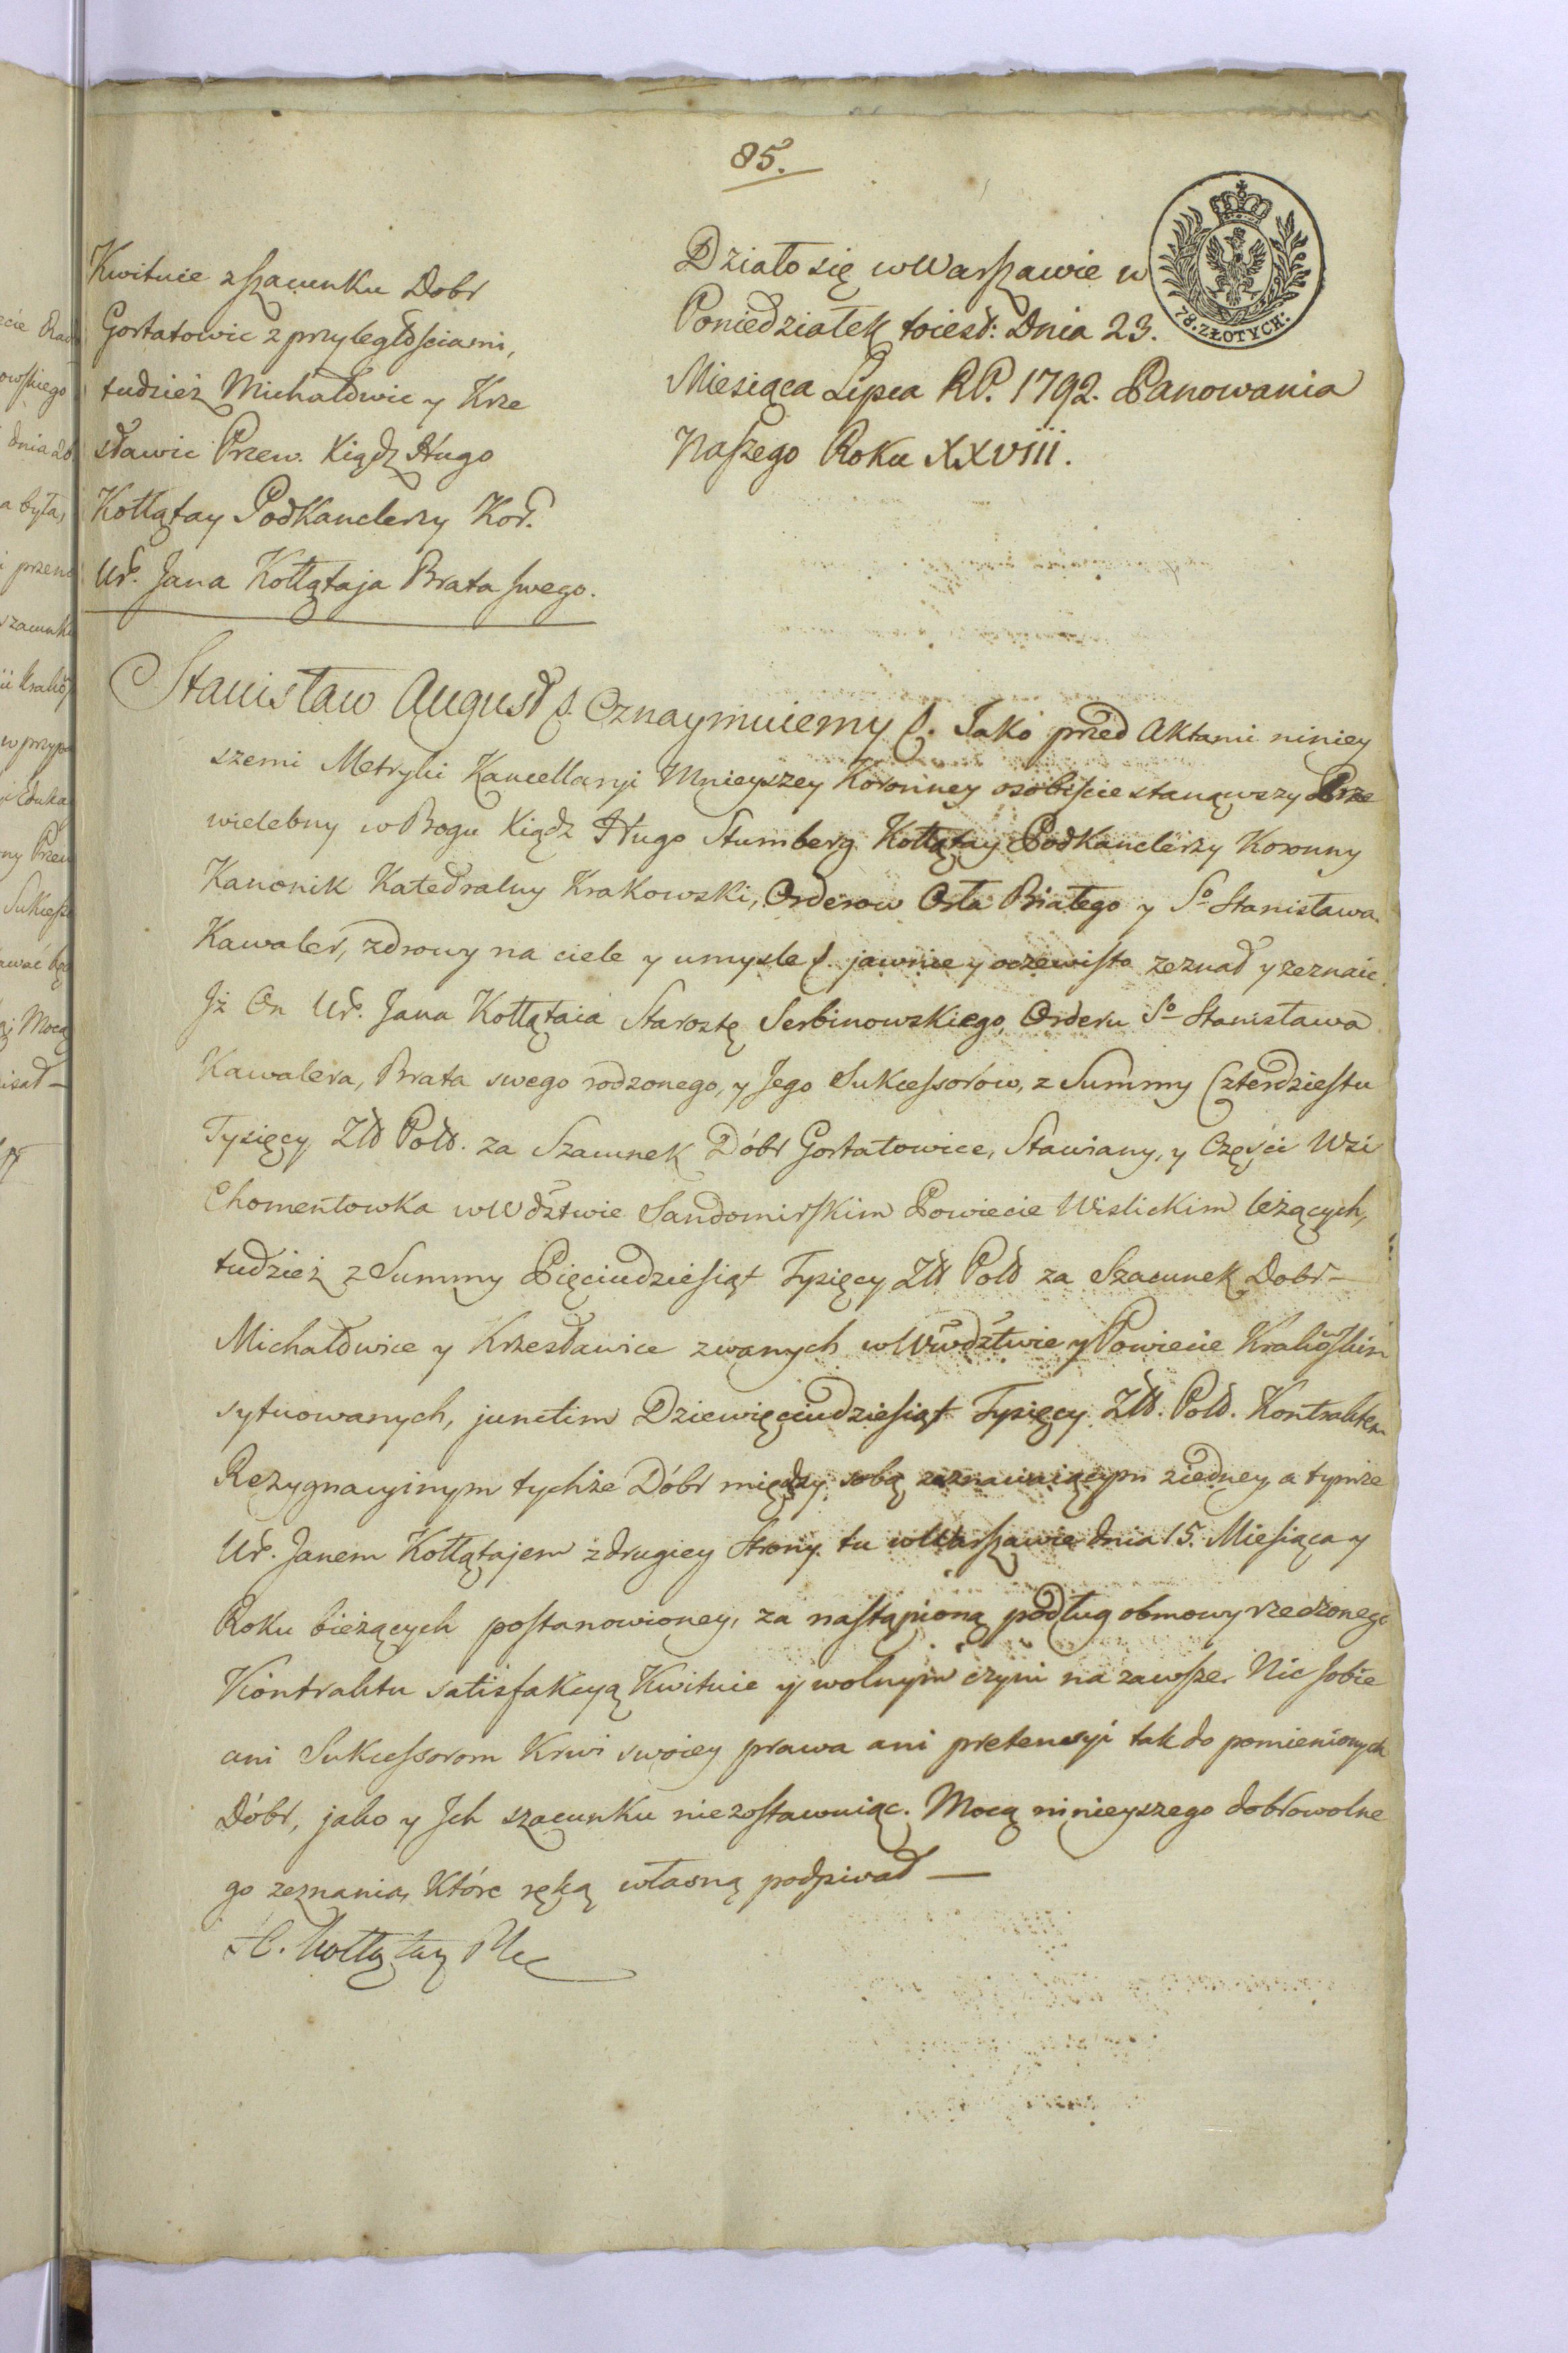 85.
Kwituie z szacunku Dobr
Gortatowic z przyległościami,
tudzież Michałowic y Krze
sławic Przew. Xiądz Hugo
Kołłątay PodKanclerzy Kor.
Ur. Jana Kołłątaja Brata swego.
Działo się w Warszawie w
Poniedziałek toiest: Dnia 23.
Miesiąca Lipca RP. 1792. Panowania
Naszego Roku XXVIII.
78. ZŁOTYCH:
Stanisław August f. Oznaymuiemy f. Jako przed Aktami niniey
szemi Metryki Kancellaryi Mnieyszey Koronney osobiście stanąwszy Prze
wielebny w Bogu Xiądz Hugo Stumberg Kołłątay PodKanclerzy Koronny
Kanonik Katedralny Krakowski, Orderow Orła Białego y So Stanisława
Kawaler, zdrowy na ciele y umyśle f. jawnie y oczewisto zeznał y zeznaie
Iż On Ur. Jana Kołłątaia Starostę Serbinowskiego, Orderu So Stanisława
Kawalera, Brata swego rodzonego, y Jego Sukcessorow, z Summy Czterdziestu
Tysięcy Zł Pol. za Szacunek Dóbr Gortatowice, Stawiany, y Części Wsi
Chomentowka w Wdztwie Sandomirskim Powiecie Wislickim leżących,
tudzież z Summy Pięciudziesiąt Tysięcy Zł Pol za Szacunek Dobr
Michałowice y Krzesławice zwanych w Wwodztwie y Powiecie Krakoskim
sytuowanych, junctim Dziewięciudziesiąt Tysięcy Zł. Pol. Kontraktem
Rezygnacyinym tychże Dóbr między sobą zeznawaiącym z iedney, a tymże
Ur. Janem Kołłątajem z drugiey Strony tu w Warszawie dnia 15. Miesiąca y
Roku bieżących postanowioney, za nastąpioną podług obmowy rzeczonego
Kontraktu satisfakcyą Kwituie y wolnym czyni na zawsze. Nic sobie
ani Sukcessorom Krwi swoiey prawa ani pretensyi tak do pomienionych
Dóbr, jako y Ich szacunku niezostawuiąc. Mocą ninieyszego dobrowolne
go zeznania, Które ręką własną podpisał —
H. Kołłątay